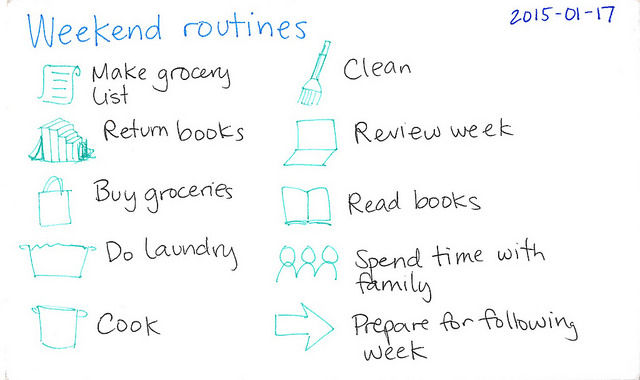 Weekend routines
2015-01-17
Make grocery
list
Return books
Buy groceries
Do laundry
Cook
Clean
Review week
Read books
Spend time with
family
Prepare for following
week